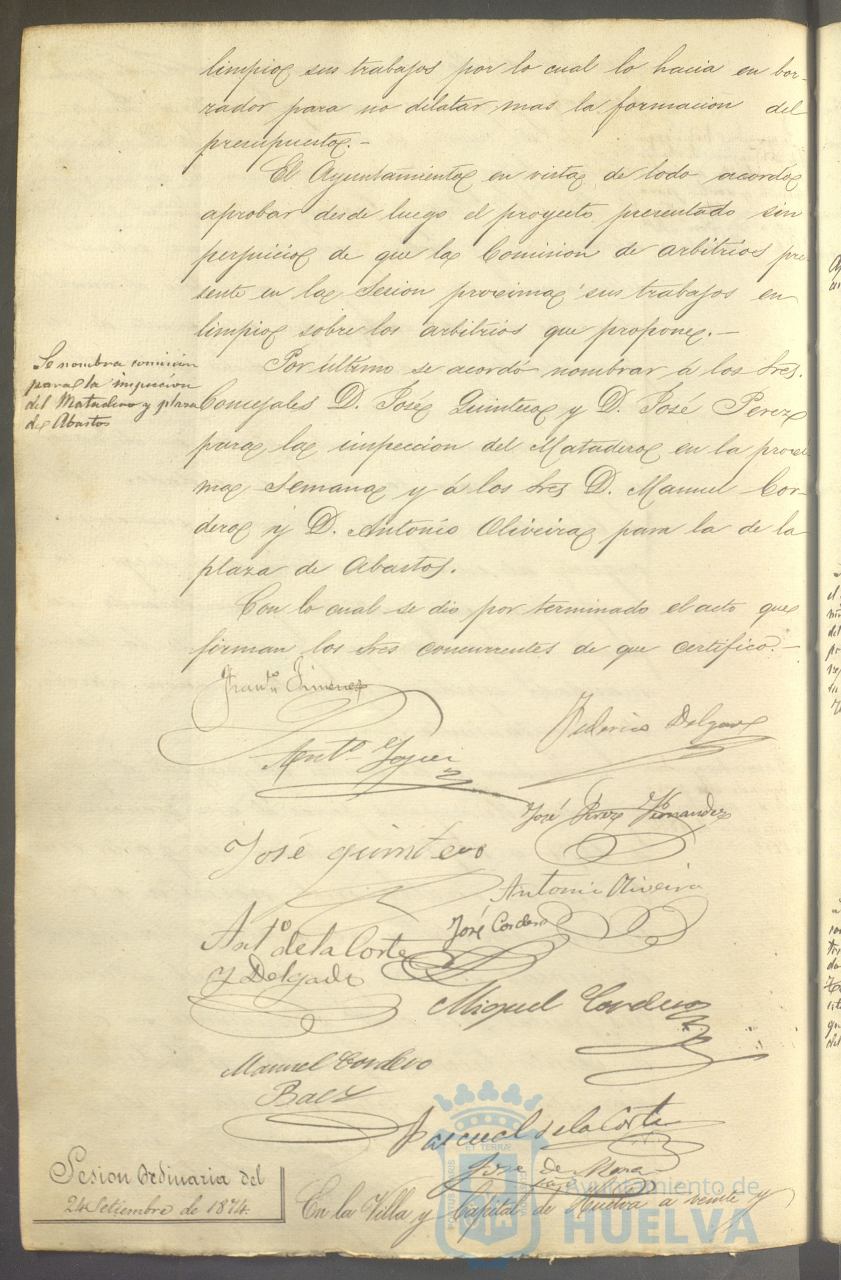 limpio sus trabajos por lo cual lo hacia en bor-
rador para no dilatar mas la formacion del
presupuesto.-
El Ayuntamiento en vista de todo acordó
aprobar desde luego el proyecto presentado sin
perjuicio de que la Comision de arbitrios pre
sente en la Sesion proxima sus trabajos en
limpio sobre los arbitrios que propone.-
Se nombra comision
para la inspeccion
del Matadero y plaza
de Abastos
Por último se acordó nombrar á los Sres.
Concejales D. José Quintero y D. José Perez
para la inspeccion del Matadero en la proxi
ma semana y á los Sres D. Manuel Cor-
dero y D. Antonio Oliveira para la de la
plaza de Abastos.
Con lo cual se dio por terminado el acto que
firman los Sres concurrentes de que certifico.-
Franco Jimenez
Federico Delgado
Anto
José Perez Hernandez
José quintero
Antonio Oliveira
Anto de la Corte
y Delgado
José Cordero
Miguel Cordero
Manuel Cordero
Baez
Pascual de la Corte
José de Mora
Sesion Ordinaria del
24 Setiembre de 1874.
En la Villa y Capital de Huelva a veinte y
Ayuntamiento de
HUELVA